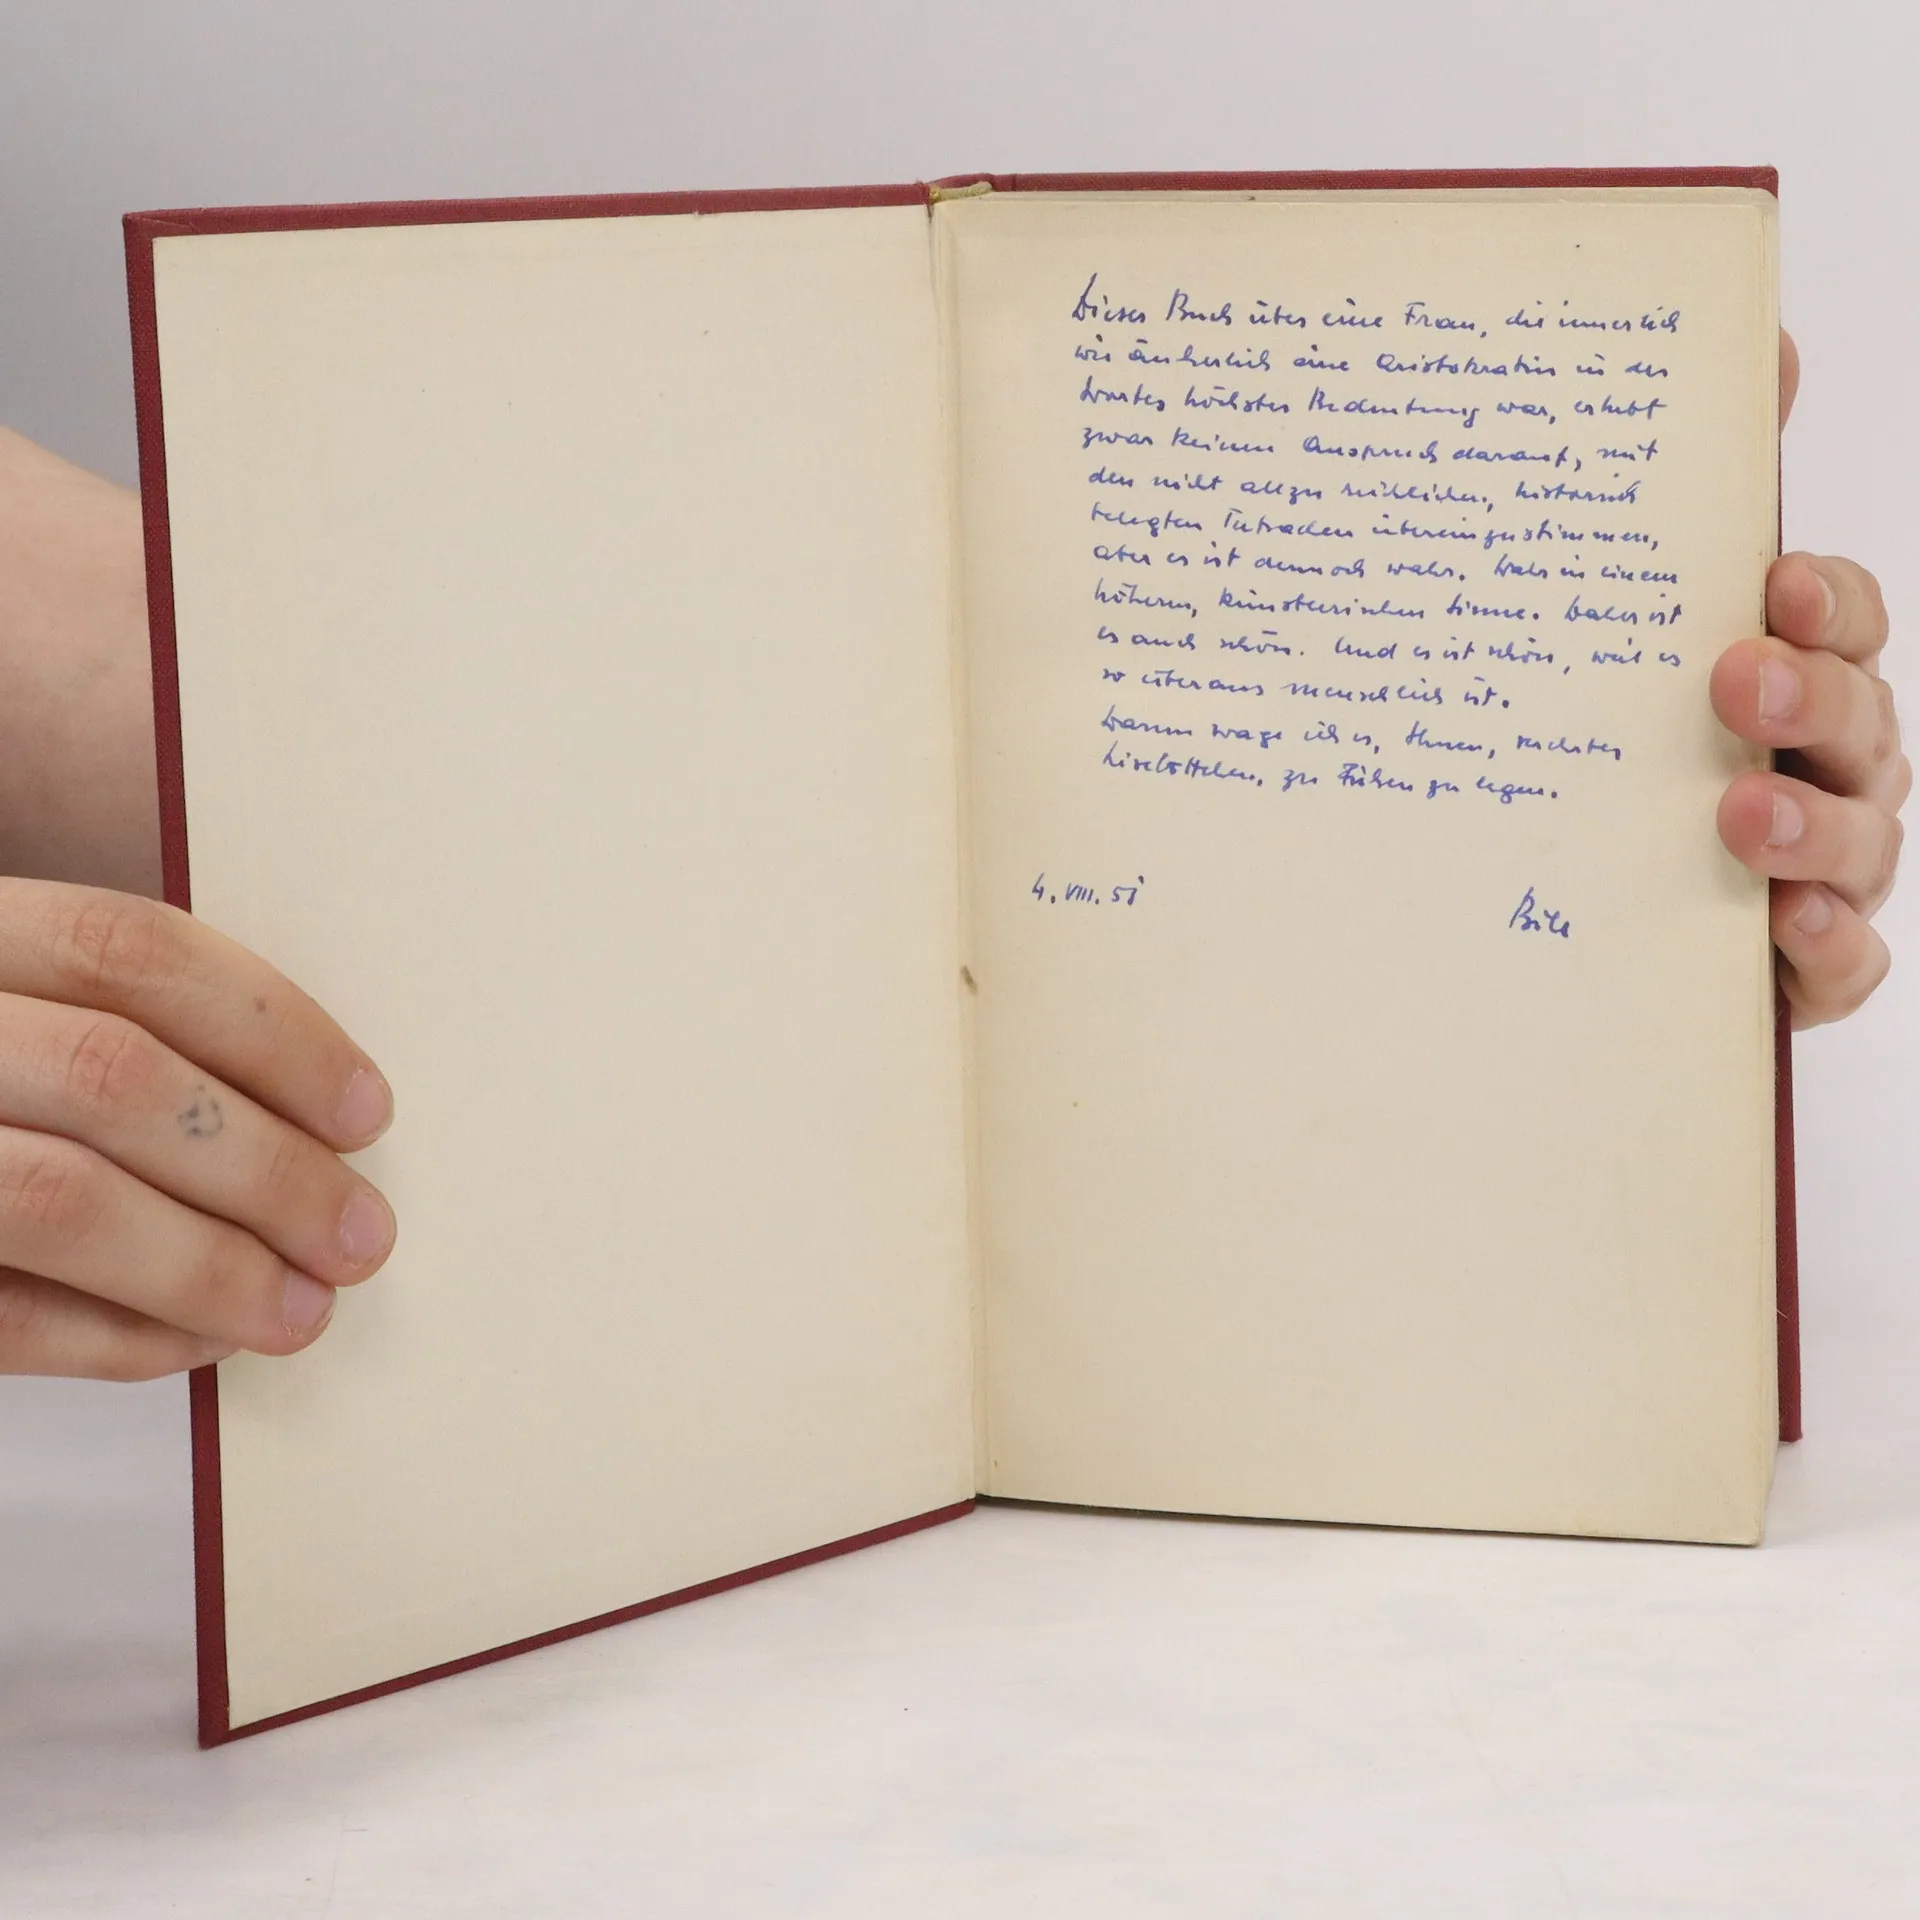 Dieses Buch über eine Frau, die innerlich
wie äußerlich eine Aristokratin in des
Wortes höchster Bedeutung war, erhebt
zwar keinen Anspruch darauf, mit
den nicht allzu reichlichen, historisch
belegten Tatsachen übereinzustimmen,
aber es ist dennoch wahr. Wahr in einem
höheren, künstlerischen Sinne. Daher ist
es auch schön. Und es ist schön, weil es
so überaus menschlich ist.
Darum wage ich es, Ihnen,
Liselottchen, zu Füßen zu legen.
4. VIII. 51